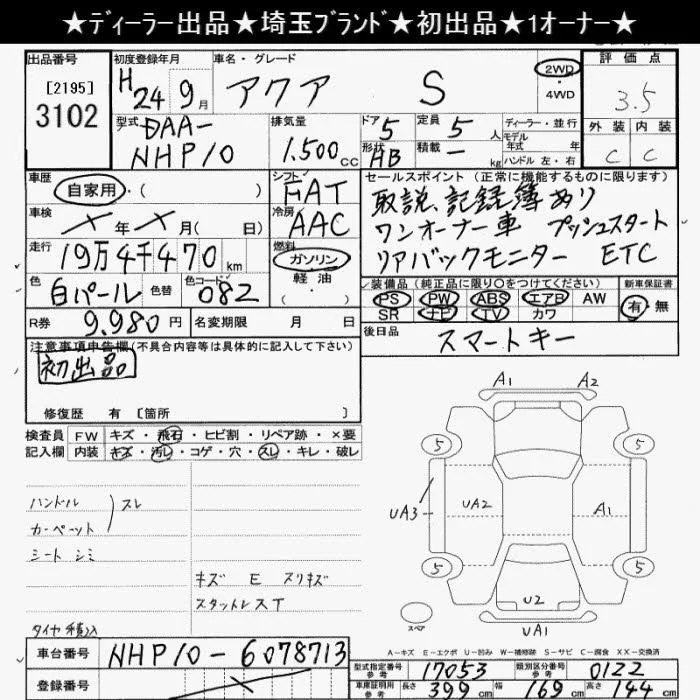 ★ディーラー出品★埼玉ブランド★初出品★1オーナー★
出品番号 初度登録年月 車名・グレード 評価点
[2195] 3102 H24年9月 アクア S 2WD・4WD 3.5
型式 排気量 ドア 定員 人 ディーラー・並行 外装 内装
DAA-NHP10 1.500cc 5 5 モデル年式 年 C C
形状 HB 積載 - kg ハンドル 左・右
車歴 自家用・( ) シフト FAT セールスポイント (正常に機能するものに限ります)
車検 ×年×月( 日) 冷房 AAC 取説、記録簿あり
走行 19万4千470km 燃料 ガソリン・軽油・( ) ワンオーナー車 プッシュスタート
リアバックモニター ETC
色 白パール 色替 色コード 082 装備品 (純正品に限り○をつけてください) 新車保証書
PS PW ABS エアB AW 有・無
SR ナビ TV カワ
R券 9.980円 名変期限 月 日 後日品 スマートキー
注意事項申告欄(不具合内容等は具体的に記入して下さい)
初出品
修復歴 有 [箇所 ]
検査員記入欄 FW キズ・飛石・ヒビ割・リペア跡・×要
内装 キズ・汚レ・コゲ・穴・スレ・キレ・破レ
ハンドル スレ
カーペット
シート シミ
キズ E スリキズ
スタットレスT
タイヤ積込
A1 A2
5 5
UA3 UA2 A1
5 5
U2
スペア UA1
A-キズ E-エクボ U-凹み W-補修跡 S-サビ C-腐食 XX-交換済
車台番号 NHP10-6078713
登録番号 ×
型式指定番号 参考 17053 類別区分番号 参考 0122
車庫証明用 参考 長さ 399cm 幅 169cm 高さ 144cm